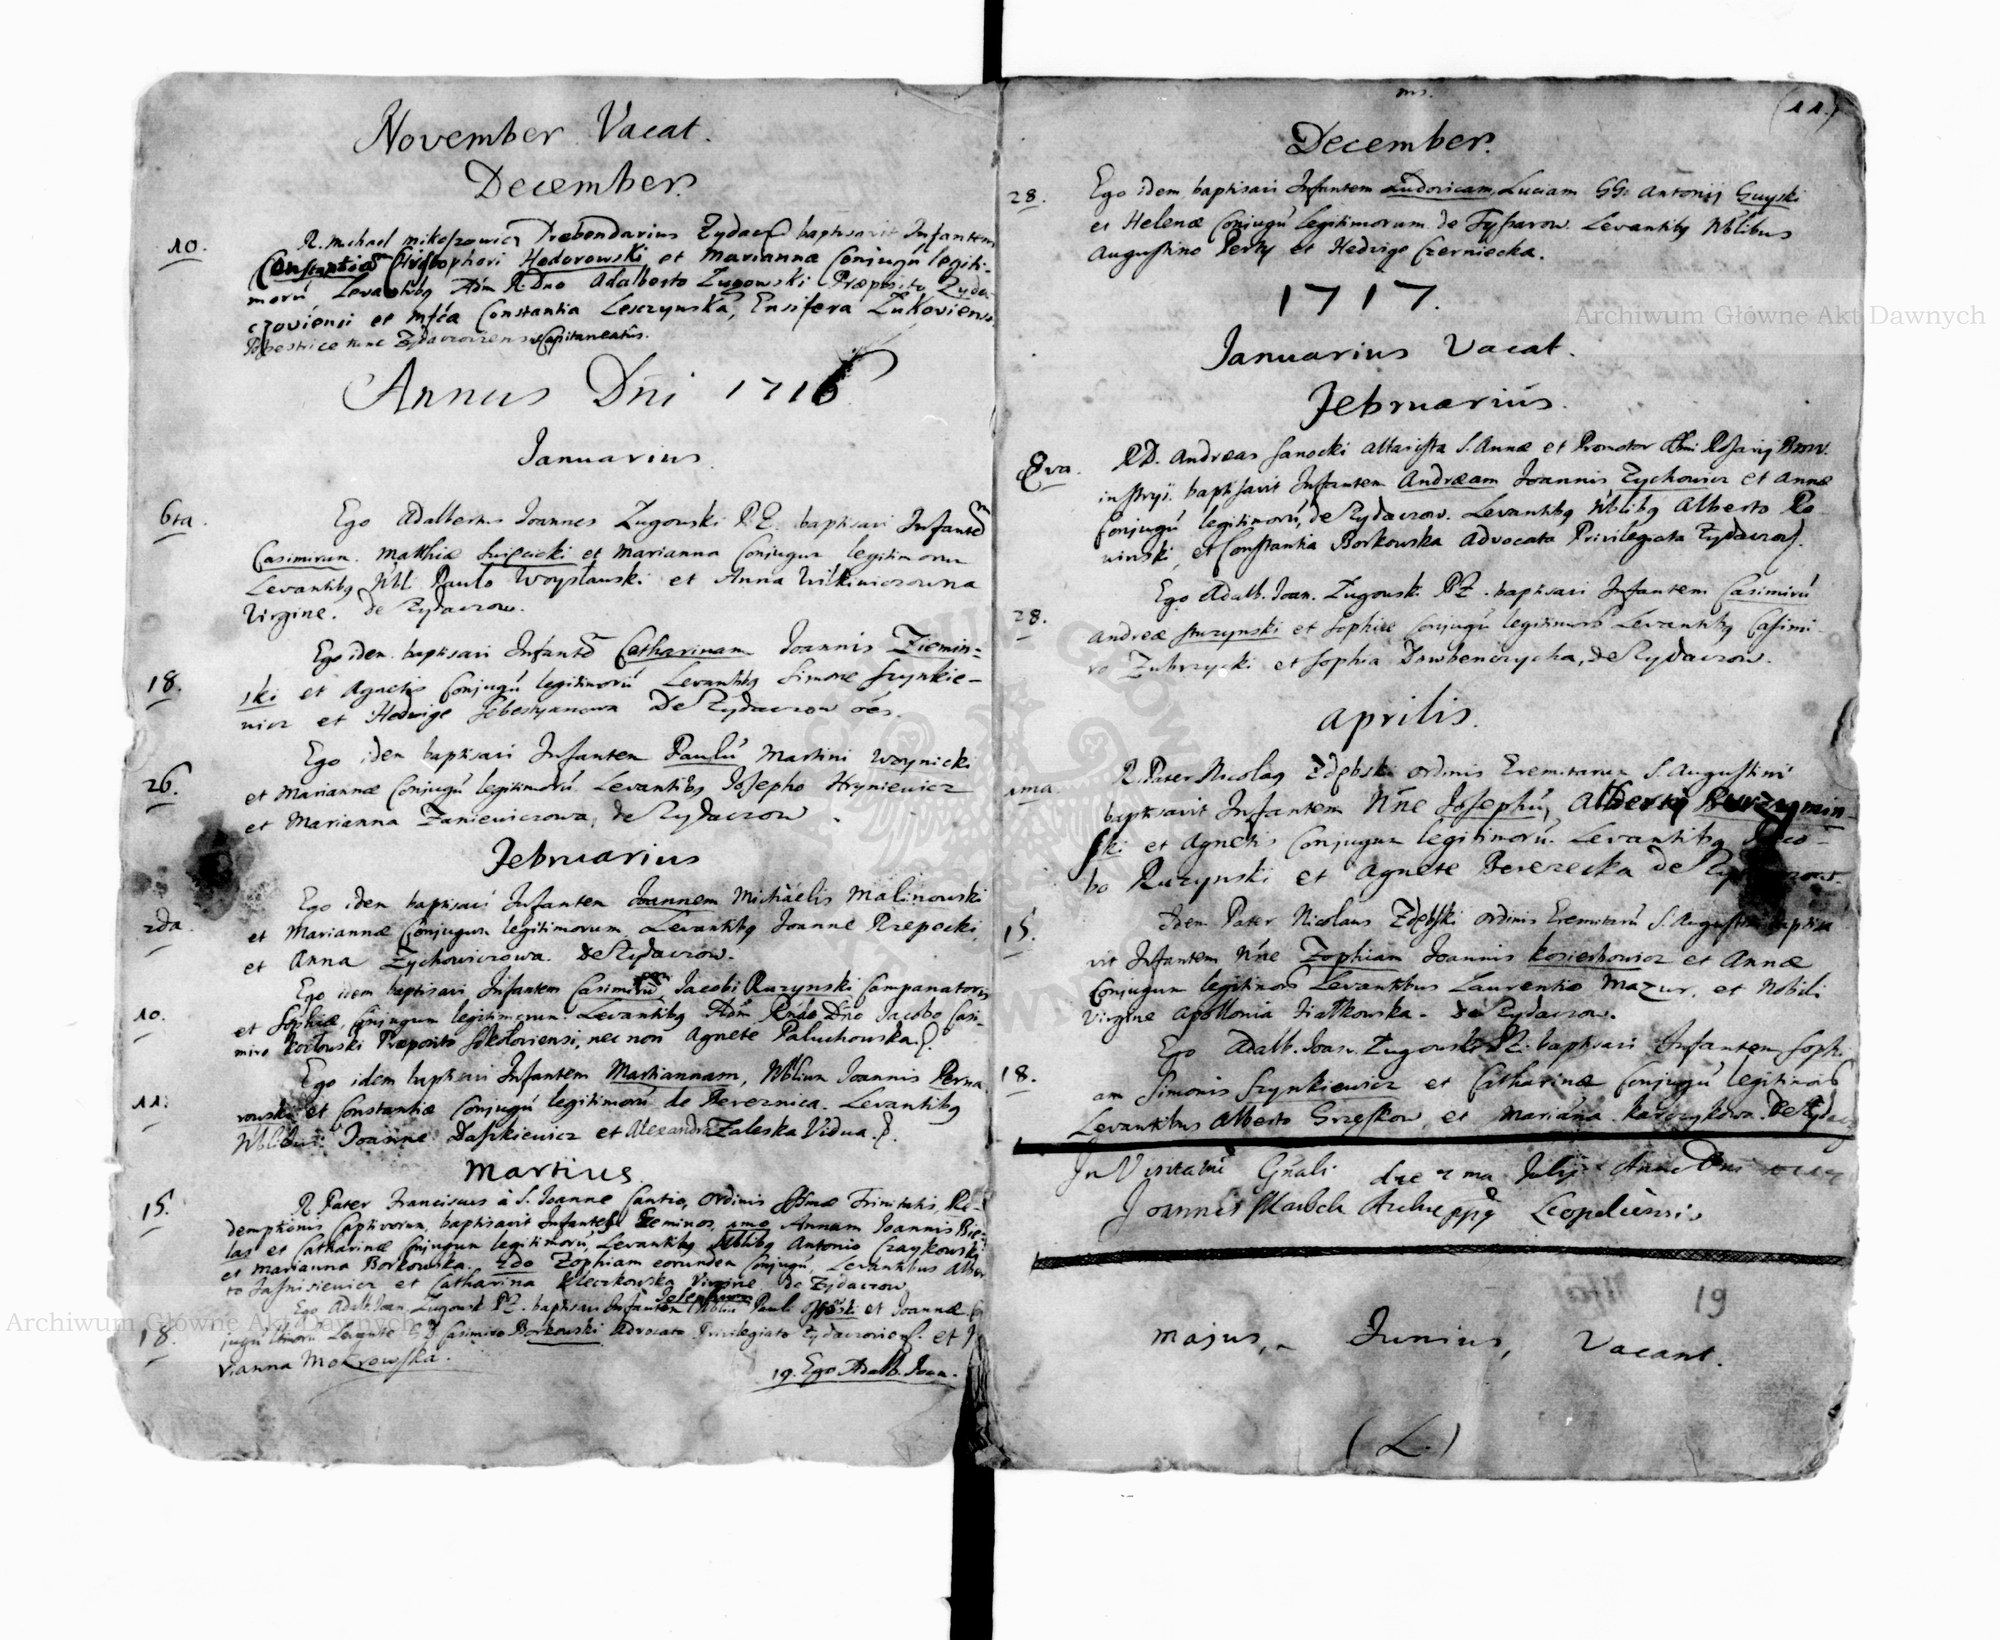 November Vacat.
December.
10. R. Michael Mikoszowicz Præbendarius Zydacz baptisavit Infantem
Constantiam Christophori Hodorowski et Mariannæ Conjugũ legiti-
morũ Levantibq Adm R. Dno Adalberto Zugowski Præposito Zyda-
czoviensi et Mfca Constantia Leszczynska, Ensifera Zukoviens.
nunc Zydaczoviensis Capitaneatûs.
Annus Dni 1716
Januarius
6ta. Ego Adalbertus Joannes Zugowski P.Z. baptisavi Infantẽ
Casimirum Matthiæ et Marianna Conjugum legitimorum
Levantibq Nbli Paulo Woysławski et Anna Wilkiwiczowna
Virgine. de Zydaczow.
Ego idem baptisavi Infantẽ Catharinam Joannis Ziemin=
18. ski et Agnetis Conjugũ legitimorũ Levantibq Simone Szynkie-
wicz et Hedvige Sebestyanowa De Zydaczow oẽs.
Ego idem baptisavi Infantem Paulũ Martini Woynicki
26. et Mariannæ Conjugũ legitimorũ Levantibq Josepho Hryniewicz
et Marianna Zaniewiczowa, de Zydaczow.
Februarius
Ego idem baptisavi Infantem Joannem Michaelis Malinowski
2da. et Mariannæ Conjugum legitimorum Levantibq Joanne Rzepecki,
et Anna Zychowiczowa. De Zydaczow.
Ego idem baptisavi Infantem Casimirum Jacobi Ruzynski Campanatoris
10. et Sophiæ, Conjugum legitimorum. Levantibq Adm Rndo Dno Jacobo Casi-
miro Kozłowski Præposito Sokołoviensi, nec non Agnete Paluchowska.
Ego idem baptisavi Infantem Mariannam, Nblium Joannis Perna-
11. rowski et Constantiæ Conjugũ legitimorũ de Bereznica. Levantibq
Nblibus Joanne Daszkiewicz et Alexandra Zaleska Vidua.
Martius.
15. R. Pater Franciscus â S. Joanne Cantio, Ordinis SSmæ Trinitatis, Re-
demptionis Captivorum, baptisavit Infantes Geminos, 1mo Annam Joannis Bie-
las et Catharinæ Conjugum legitimorũ, Levantibq Nblibq Antonio Czaykowski
et Marianna Borkowska. 2do Zophiam eorundem Conjugũ, Levantibus Alber-
to Jasnisiewicz et Catharina Kleczkowska Virgine de Zydaczow.
Ego Adalb. Joan. Zugowski P.Z. baptisavi Infantem Josephum Nblium Pauli et Joannæ Con
18. jugũ ltmorũ Levante G.D. Casimiro Borkowski Advocato Privilegiato Zydaczoviens. et
vianna Mokrowska.
19. Ego Adalb. Joan.
(11.)
December.
28. Ego idem baptisavi Infantem Ludovicam Luciam GG: Antonij Guyski
et Helenæ Conjugũ legitimorum de Tyszarow. Levantibq Nblibus
Augustino Perty et Hedvige Czerniecka.
1717.
Januarius Vacat.
Februariûs.
8va. RD. Andreas Sanocki Altarista S. Annæ et Promotor SSmi Rosarij
in Stryi. baptisavit Infantem Andræam Joannis Zychowicz et Annæ
Conjugũ legitimorũ, de Zydaczow. Levantibq Nblibq Alberto Ro-
winski, et Constantia Borkowska Advocata Privilegiata Zydaczow.
Ego Adalb. Joan. Zugowski P.Z. baptisavi Infantem Casimirũ
28. Andreæ et Sophiæ Conjugũ legitimorũ Levantibq Casimi-
ro Zubrzycki et Sophia de Zydaczow.
Aprilis.
R. Pater Nicolaq Zdębski ordinis Eremitarum S. Augustini
1ma. baptisavit Infantem Nne Josephũ, Alberti
ski et Agnetis Conjugum legitimorũ. Levantibq Jaco-
bo Ruzynski et Agnete Berezecka de Zydaczow.
Idem Pater Nicolaus Zdębski ordinis Eremitarũ S. Augustini baptisa
15. vit Infantem Nne Zophiam Joannis Kosierkowicz et Annæ
Conjugum legitimorũ Levantibus Laurentio Mazur, et Nobili
Virgine Apollonia Fiałkowska. de Zydaczow.
Ego Adalb. Joan. Zugowski P.Z. baptisavi Infantem Sophi
18. am Simonis Szynkiewicz et Catharinæ Conjugũ legitimorũ
Levantibus Alberto Grzeskow, et Mariana Karczykowa. De Zydacz
In Visitatne Gñali die 2ma July Anno Dni
Joannes Skarbek Archieppq Leopoliensis
19
Majus, Junius, Vacant.
(L.)
Archiwum Główne Akt Dawnych
Archiwum Główne Akt Dawnych